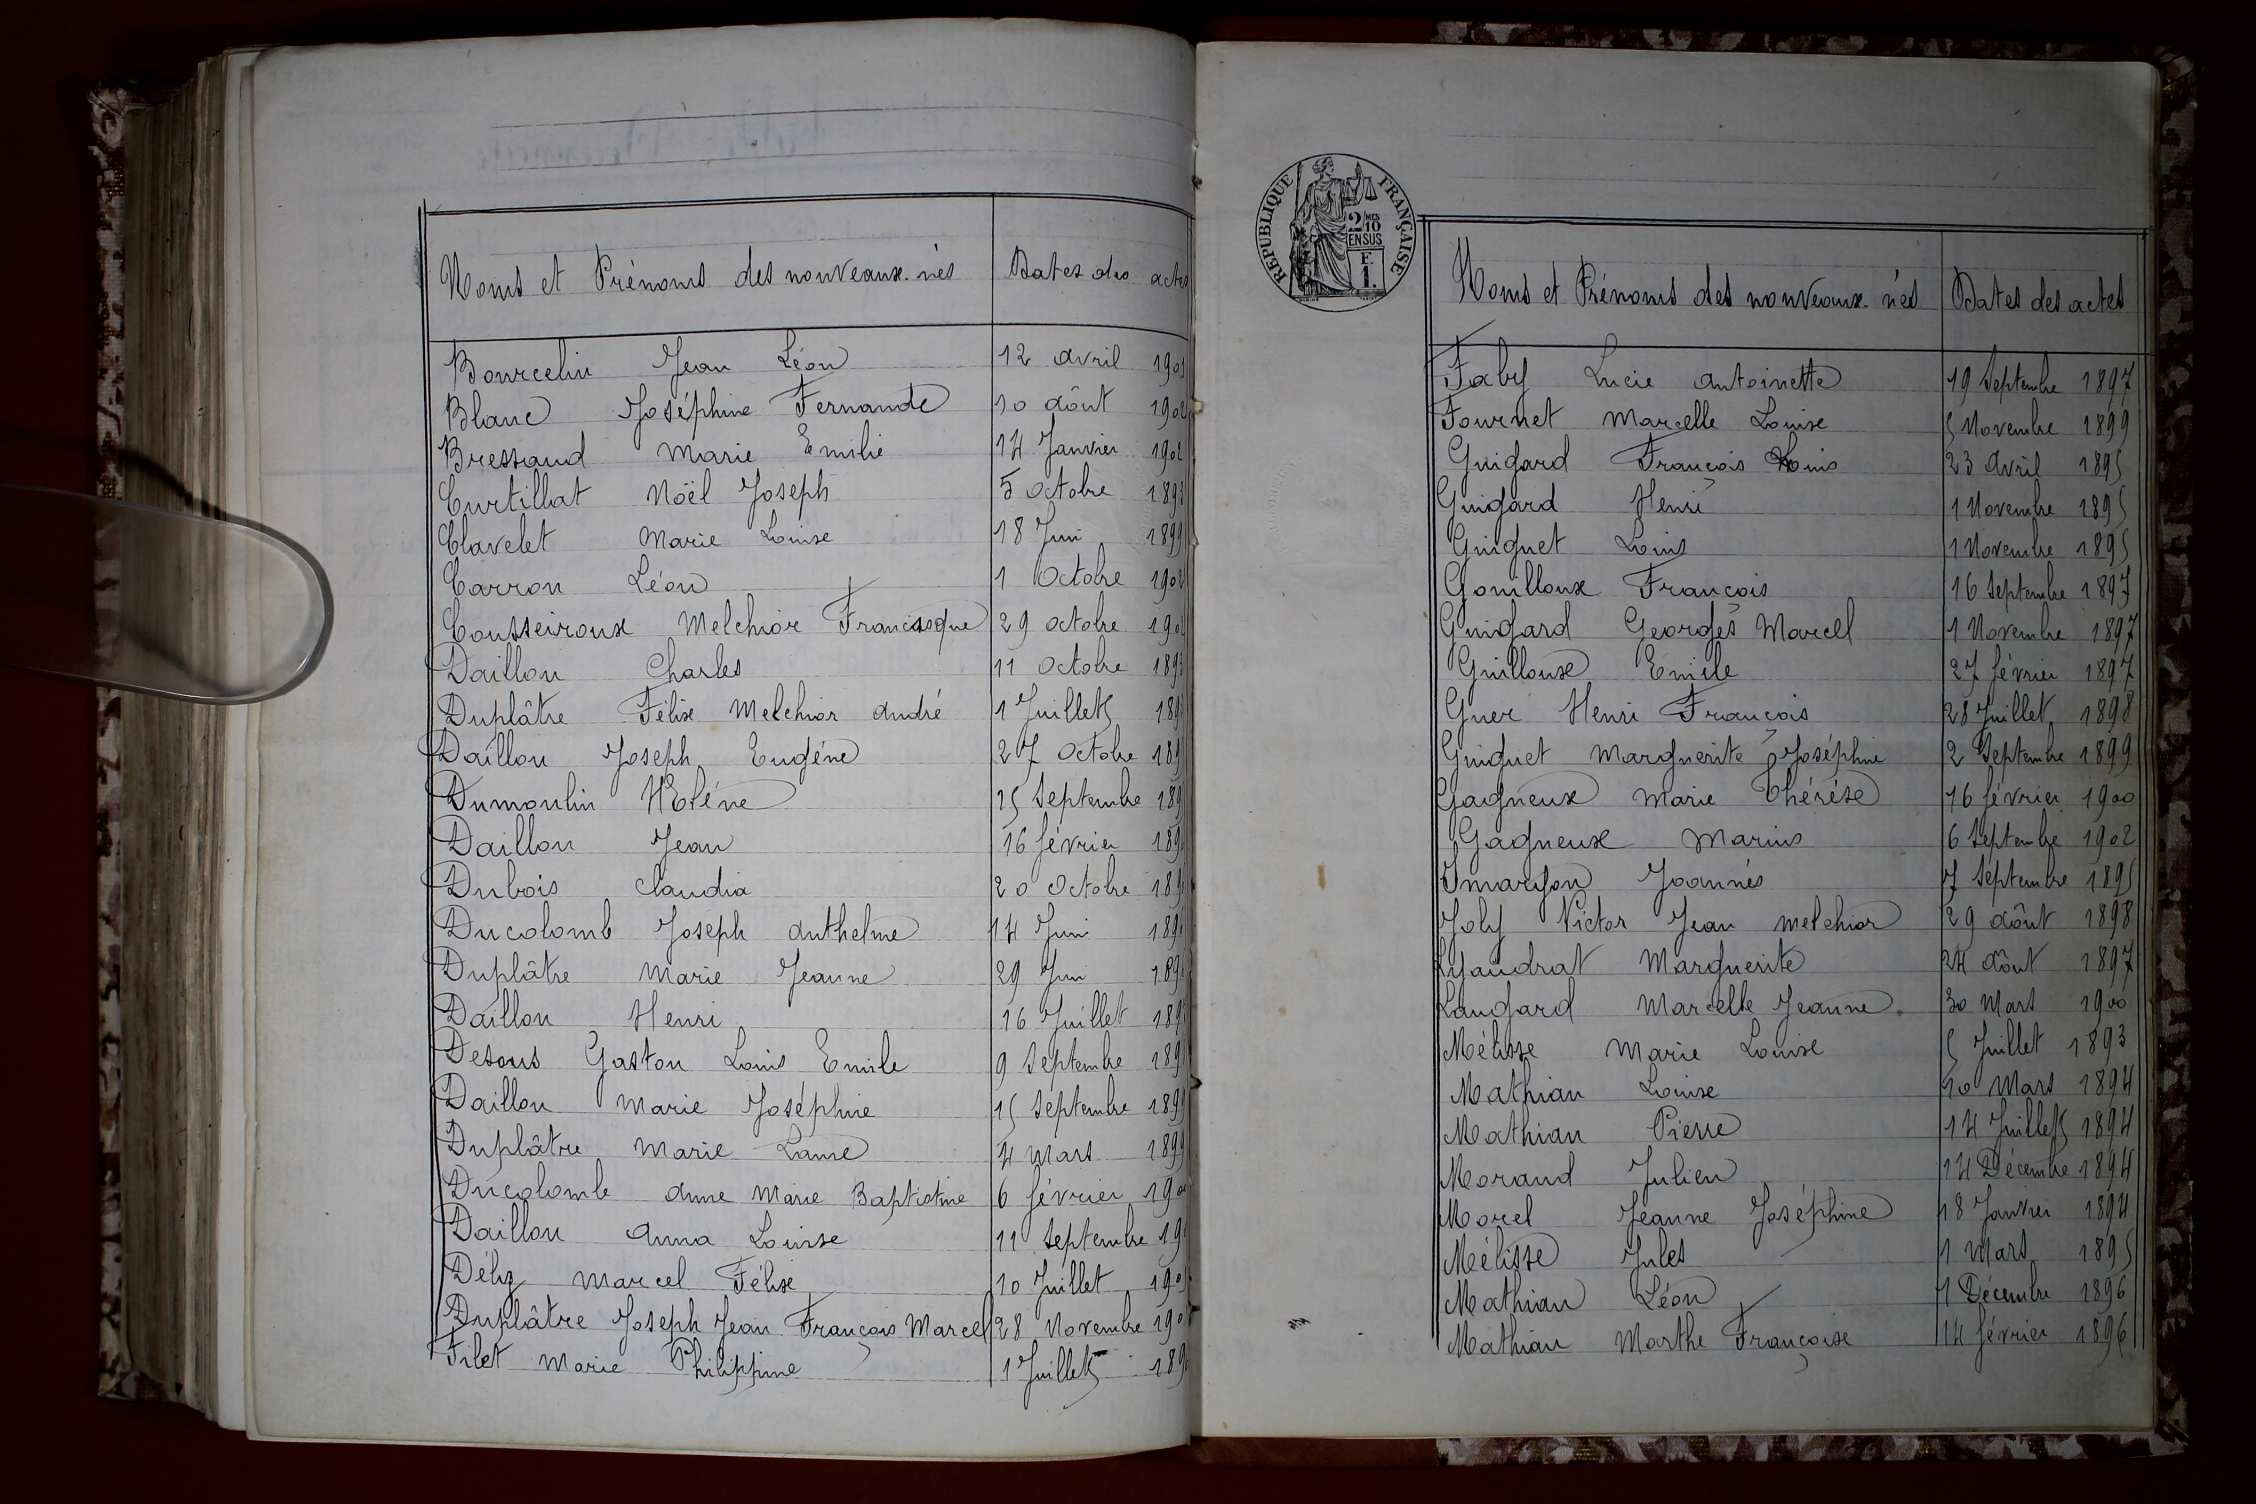 Noms et Prénoms des nouveaux-nés Dates des actes
Bourcelin Jean Léon 12 avril 1901
Blanc Joséphine Fernande 10 aôut 1902
Bressand Marie Emilie 14 Janvier 1902
Curtillat Noël Joseph 5 octobre 1893
Clavelet Marie Louise 18 Juin 1899
Carron Léon 1 Octobre 1902
Cousseiroux Melchior Francisque 29 octobre 190
Daillon Charles 11 Octobre 189
Duplâtre Félix Melchior André 1 Juillet 189
Daillon Joseph Eugéne 27 Octobre 189
Dumoulin Héléne 15 Septembre 189
Daillon Jean 16 février 189
Dubois Claudia 20 Octobre 189
Ducolomb Joseph Anthelme 14 Juin 189
Duplâtre Marie Jeanne 29 Juin 189
Daillon Henri 16 Juillet 189
Desous Gaston Louis Emile 9 Septembre 189
Daillon Marie Joséphine 15 Septembre 1899
Duplâtre Marie Laure 4 Mars 1899
Ducolomb Anne Marie Baptistine 6 février 190
Daillon Anna Louise 11 Septembre 19
Déliz Marcel Félix 10 Juillet 190
Duplâtre Joseph Jean François Marcel 28 Novembre 190
Filet Marie Philippine 1 Juillet 189
RÉPUBLIQUE FRANÇAISE
2/MES
10
EN SUS
F.
1.
Noms et Prénoms des nouveaux-nés Dates des actes
Faby Lucie Antoinette 19 Septembre 1897
Fournet Marcelle Louise 5 Novembre 1899
Guigard François Louis 23 Avril 1895
Guigard Henri 1 Novembre 1895
Guiguet Louis 1 Novembre 1895
Gouilloux François 16 Septembre 1897
Guigard Georges Marcel 1 Novembre 1897
Guilloux Emile 27 février 1897
Guer Henri François 28 Juillet 1898
Guiguet Marguerite Joséphine 2 Septembre 1899
Gagneux Marie Thérése 16 février 1900
Gagneux Marius 6 Septembre 1902
Joannés 7 Septembre 1895
Joly Victor Jean Melchior 29 aôut 1898
Lyaudrat Marguerite 24 aôut 1897
Laugard Marcelle Jeanne 30 Mars 1900
Mélisse Marie Louise 5 Juillet 1893
Mathian Louise 10 Mars 1894
Mathian Pierre 14 Juillet 1894
Morand Julien 14 Décembre 1894
Morel Jeanne Joséphine 18 Janvier 1894
Mélisse Jules 1 Mars 1895
Mathian Léon 1 Décembre 1896
Mathian Marthe Françoise 14 février 1896